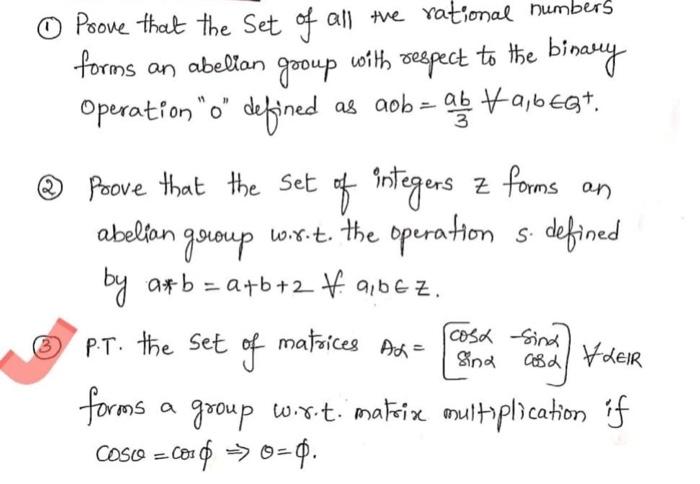 ① Prove that the Set of all +ve rational numbers
forms an abelian group with respect to the binary
Operation "o" defined as aob = ab/3 ∀ a,b ∈ Q⁺.
② Prove that the set of integers z forms an
abelian group w.r.t. the operation s. defined
by a*b = a+b+2 ∀ a,b ∈ Z.
③ P.T. the set of matrices Aα = [cosα -sinα
sinα cosα] ∀ α∈IR
forms a group w.r.t. matrix multiplication if
cosθ = cosϕ ⇒ θ=ϕ.